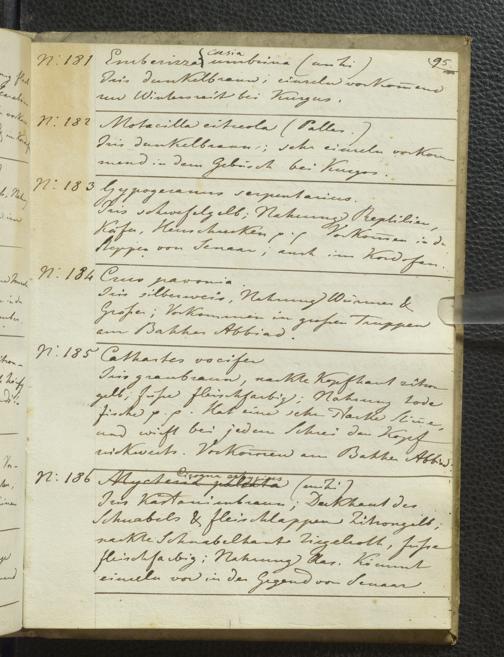 95.
No: 181 Emberizza { caesia umbrina (mihi)
Iris dunkelbraun; einzeln vorkom̄end
zur Winterszeit bei Kurgos.
No: 182 Motacilla citreola (Pallas.)
Iris dunkelbraun; sehr einzeln vorkom̄
mend in dem Gebüsch bei Kurgos.
No: 183 Gypogeranus serpentarius.
Iris schwefelgelb; Nahrung Reptilien,
Käfer, Heuschrecken p. p. Vorkom̄en in d.
Steppen von Senaar, auch im Kordofan.
No: 184 Grus pavonia
Iris silberweiss, Nahrung Würmer &
Gräser; Vorkommen in grossen Truppen
am Bahher Abbiad.
No: 185 Cathartes vocifer
Iris graubraun, nackte Kopfhaut zitron
gelb, Füsse fleischfarbig; Nahrung todte
Fische p. p. Hat eine sehr starke Stim̄e,
und wirft bei jedem Schrei den Kopf
rückwerts. Vorkom̄en am Bahher Abbiad.
No: 186 (mihi)
Iris Kastanienbraun; Deckhaut des
Schnabels & Fleischlappen Zitrongelb;
nackte Schnabelhaut Ziegelroth, Füsse
fleischfarbig; Nahrung Aas. Kömmt
einzeln vor in der Gegend von Senaar.